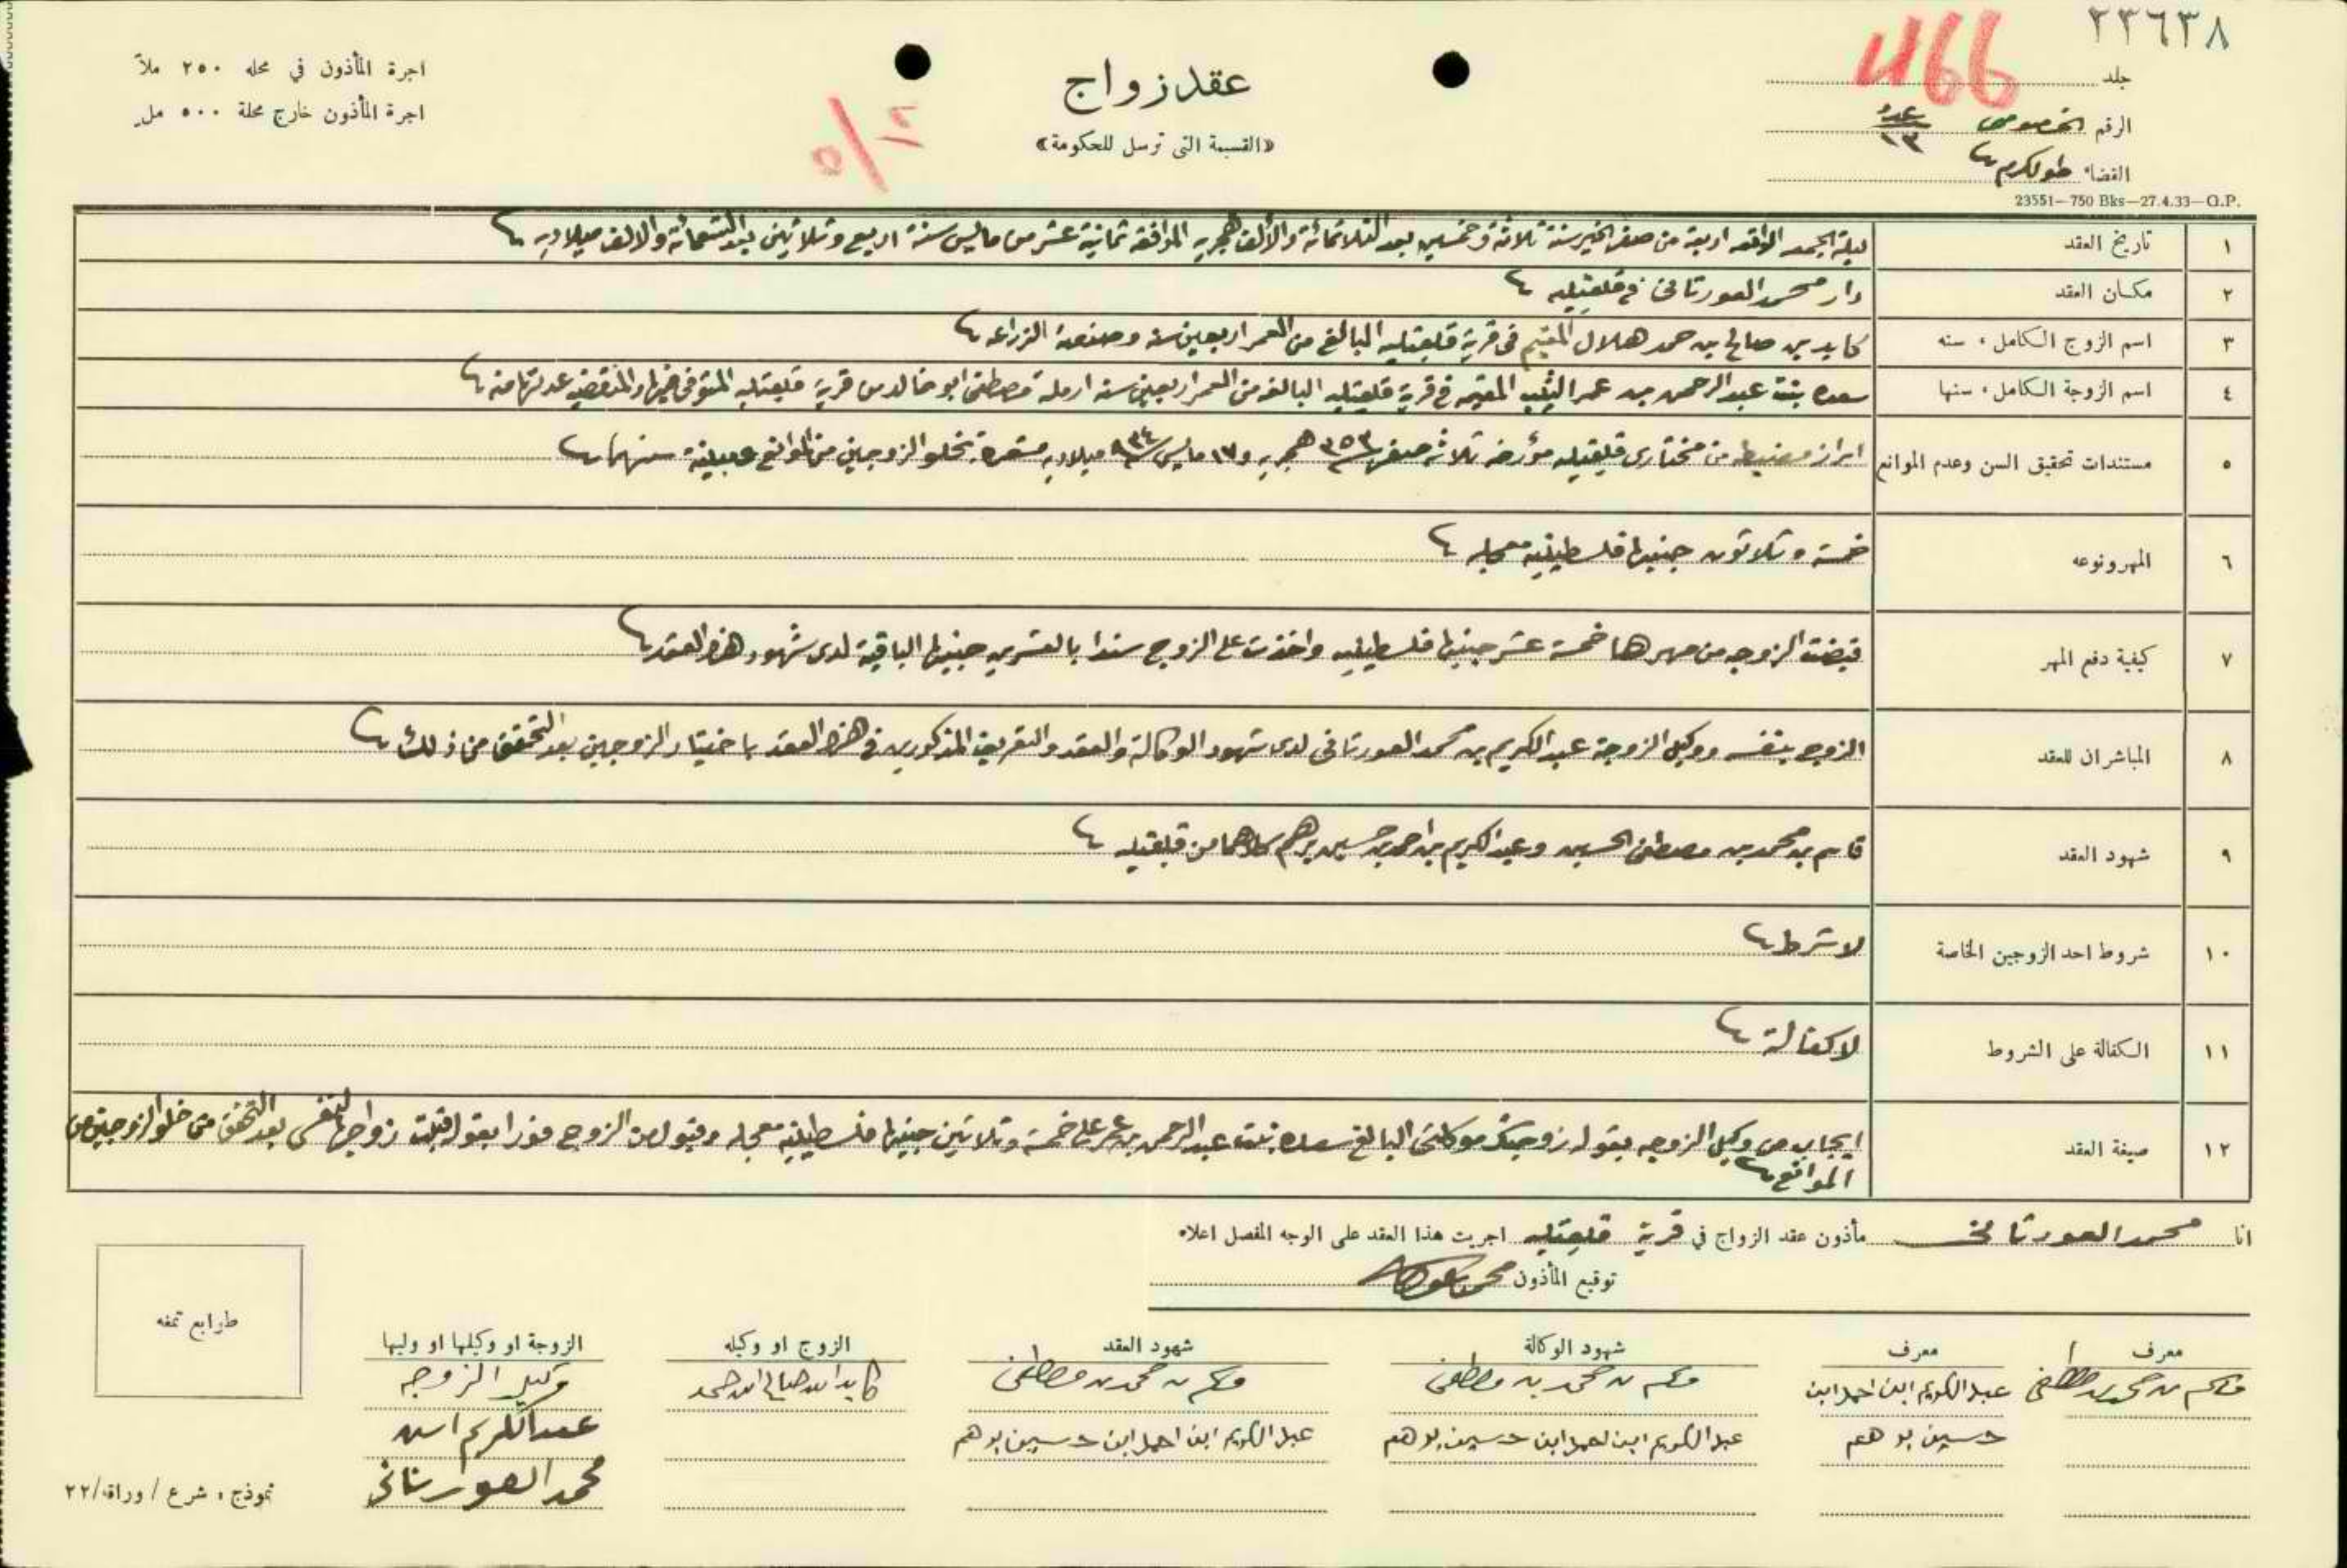 ٢٣٦٣٨
1166
جلد
الرقم الخصوصي عدد ١٣
القضاء طولكرم
23551—750 Bks—27.4.33—G.P.
عقد زواج
«القسيمة التى ترسل للحكومة»
اجرة المأذون في محله ٢٥٠ ملاً
اجرة المأذون خارج محلة ٥٠٠ مل
١ تاريخ العقد ليلة الجمعه الواقعه اربعة من صفر الخير سنة ثلاثة وخمسين بعد الثلاثمائة والألف هجريه الموافقه ثمانية عشر من مايس سنة اربع وثلاثين بعد التسعمائة والالف ميلاديه
٢ مكان العقد دار محمد العورتانى في قلقيليه
٣ اسم الزوج الكامل ، سنه كايد بن صالح بن حمد هلال المقيم فى قرية قلقيليه البالغ من العمر اربعين سنه وصنعته الزراعه
٤ اسم الزوجة الكامل ، سنها سعده بنت عبد الرحمن بن عمر الثيب المقيمه في قرية قلقيليه البالغه من العمر اربعين سنه ارملة مصطفى ابو خالد من قرية قلقيليه المتوفى عنها والمنقضيه عدتها منه
٥ مستندات تحقيق السن وعدم الموانع ابراز مضبطه من مختارى قلقيليه مؤرخه ثلاثه صفر ٣٥٣ هجريه و ١٧ مايس ٩٣٤ ميلاديه مشعرة بخلو الزوجين من الموانع مبينة سنهما
٦ المهر ونوعه خمسة وثلاثون جنيها فلسطينيه معجله
٧ كيفية دفع المهر قبضت الزوجه من مهرها خمسة عشر جنيها فلسطينيه واخذت على الزوج سندا بالعشرين جنيها الباقية لدى شهود هذا العقد
٨ المباشران للعقد الزوج بنفسه ووكيل الزوجة عبد الكريم بن محمد العورتانى لدى شهود الوكالة والعقد والتعريف المذكورين في هذا العقد باختيار الزوجين بعد التحقق من ذلك
٩ شهود العقد قاسم بن محمد بن مصطفى الحسين وعبد الكريم بن احمد بن حسين برهم كلاهما من قلقيليه
١٠ شروط احد الزوجين الخاصة لا شرط
١١ الكفالة على الشروط لا كفالة
١٢ صيغة العقد ايجاب من وكيل الزوجه بقوله زوجتك موكلتى البالغ سعده بنت عبد الرحمن بن عمر على خمسة وثلاثين جنيها فلسطينيه معجله وقبول من الزوج فورا بقوله قبلت زواجها لنفسى بعد التحقق من خلو الزوجين من
الموانع
انا محمد العورتانى مأذون عقد الزواج في قرية قلقيليه اجريت هذا العقد على الوجه المفصل اعلاه
توقيع المأذون
معرف معرف شهود الوكالة شهود العقد الزوج او وكيله الزوجة او وكيلها او وليها
قاسم بن محمد بن مصطفى عبد الكريم ابن احمد ابن قاسم بن محمد بن مصطفى قاسم بن محمد بن مصطفى كايد ابن صالح ابن حمد وكيل الزوجه
حسين برهم عبد الكريم ابن احمد ابن حسين برهم عبد الكريم ابن احمد ابن حسين برهم عبد الكريم ابن
محمد العورتانى
طوابع تمغه
نموذج ، شرع / وراقه/٢٢